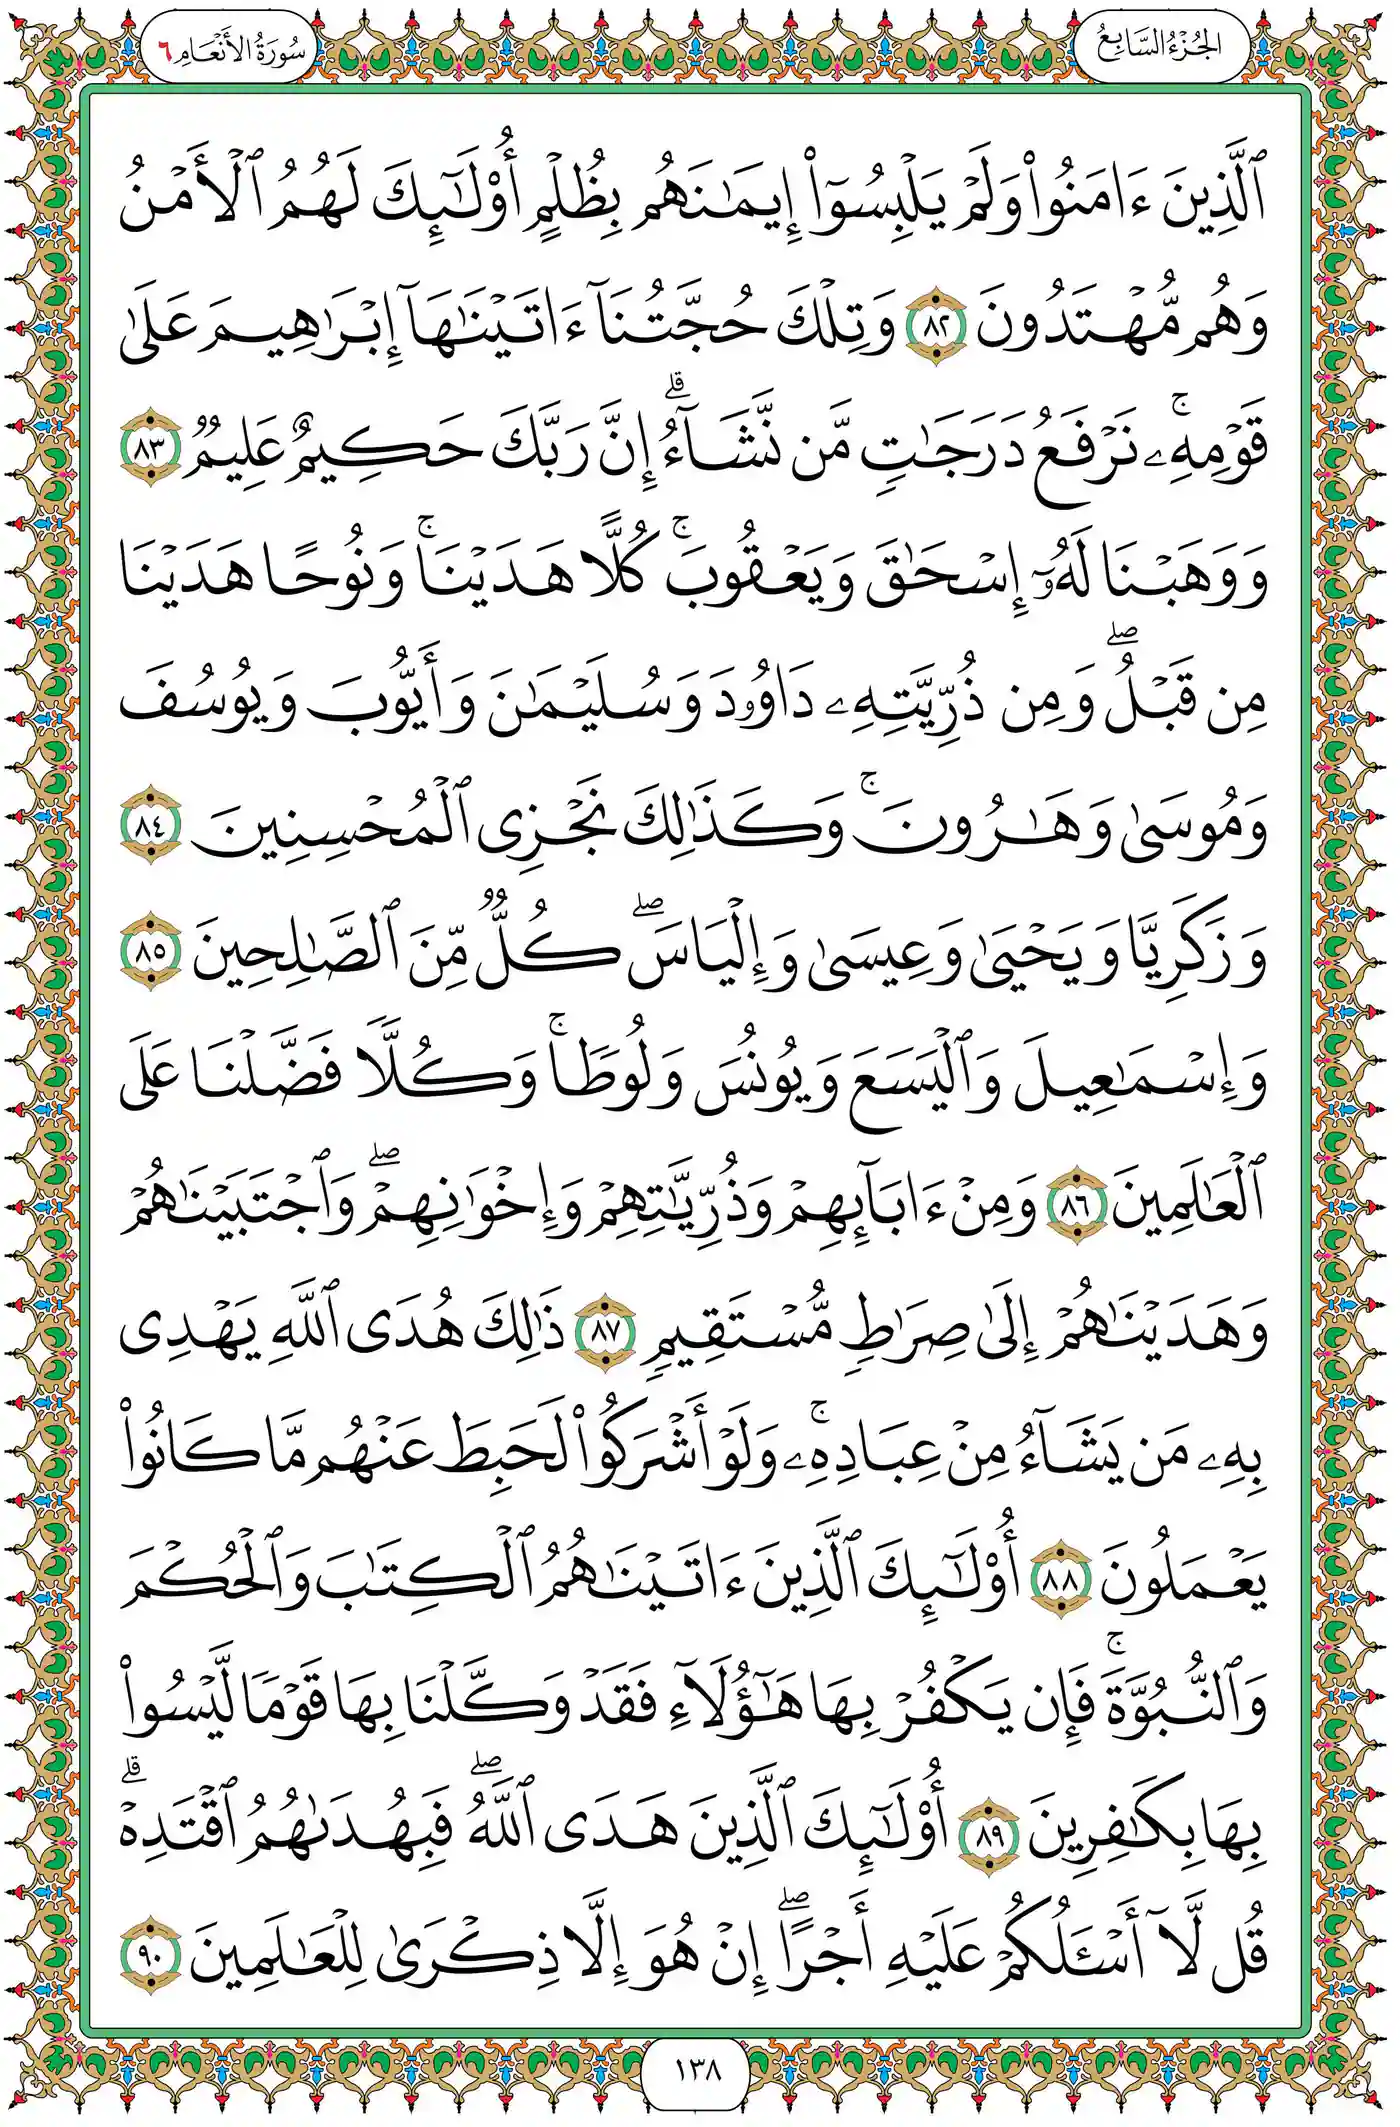 الجُزْءُ السَّابِعُ
سُورَةُ الأَنْعَامِ ٦
ٱلَّذِينَ ءَامَنُوا۟ وَلَمْ يَلْبِسُوٓا۟ إِيمَـٰنَهُم بِظُلْمٍ أُو۟لَـٰٓئِكَ لَهُمُ ٱلْأَمْنُ
وَهُم مُّهْتَدُونَ ٨٢ وَتِلْكَ حُجَّتُنَآ ءَاتَيْنَـٰهَآ إِبْرَٰهِيمَ عَلَىٰ
قَوْمِهِۦ ۚ نَرْفَعُ دَرَجَـٰتٍ مَّن نَّشَآءُ ۗ إِنَّ رَبَّكَ حَكِيمٌ عَلِيمٌ ٨٣
وَوَهَبْنَا لَهُۥٓ إِسْحَـٰقَ وَيَعْقُوبَ ۚ كُلًّا هَدَيْنَا ۚ وَنُوحًا هَدَيْنَا
مِن قَبْلُ ۖ وَمِن ذُرِّيَّتِهِۦ دَاوُۥدَ وَسُلَيْمَـٰنَ وَأَيُّوبَ وَيُوسُفَ
وَمُوسَىٰ وَهَـٰرُونَ ۚ وَكَذَٰلِكَ نَجْزِى ٱلْمُحْسِنِينَ ٨٤
وَزَكَرِيَّا وَيَحْيَىٰ وَعِيسَىٰ وَإِلْيَاسَ ۖ كُلٌّ مِّنَ ٱلصَّـٰلِحِينَ ٨٥
وَإِسْمَـٰعِيلَ وَٱلْيَسَعَ وَيُونُسَ وَلُوطًا ۚ وَكُلًّا فَضَّلْنَا عَلَى
ٱلْعَـٰلَمِينَ ٨٦ وَمِنْ ءَابَآئِهِمْ وَذُرِّيَّـٰتِهِمْ وَإِخْوَٰنِهِمْ ۖ وَٱجْتَبَيْنَـٰهُمْ
وَهَدَيْنَـٰهُمْ إِلَىٰ صِرَٰطٍ مُّسْتَقِيمٍ ٨٧ ذَٰلِكَ هُدَى ٱللَّهِ يَهْدِى
بِهِۦ مَن يَشَآءُ مِنْ عِبَادِهِۦ ۚ وَلَوْ أَشْرَكُوا۟ لَحَبِطَ عَنْهُم مَّا كَانُوا۟
يَعْمَلُونَ ٨٨ أُو۟لَـٰٓئِكَ ٱلَّذِينَ ءَاتَيْنَـٰهُمُ ٱلْكِتَـٰبَ وَٱلْحُكْمَ
وَٱلنُّبُوَّةَ ۚ فَإِن يَكْفُرْ بِهَا هَـٰٓؤُلَآءِ فَقَدْ وَكَّلْنَا بِهَا قَوْمًا لَّيْسُوا۟
بِهَا بِكَـٰفِرِينَ ٨٩ أُو۟لَـٰٓئِكَ ٱلَّذِينَ هَدَى ٱللَّهُ ۖ فَبِهُدَىٰهُمُ ٱقْتَدِهْ ۗ
قُل لَّآ أَسْـَٔلُكُمْ عَلَيْهِ أَجْرًا ۖ إِنْ هُوَ إِلَّا ذِكْرَىٰ لِلْعَـٰلَمِينَ ٩٠
١٣٨